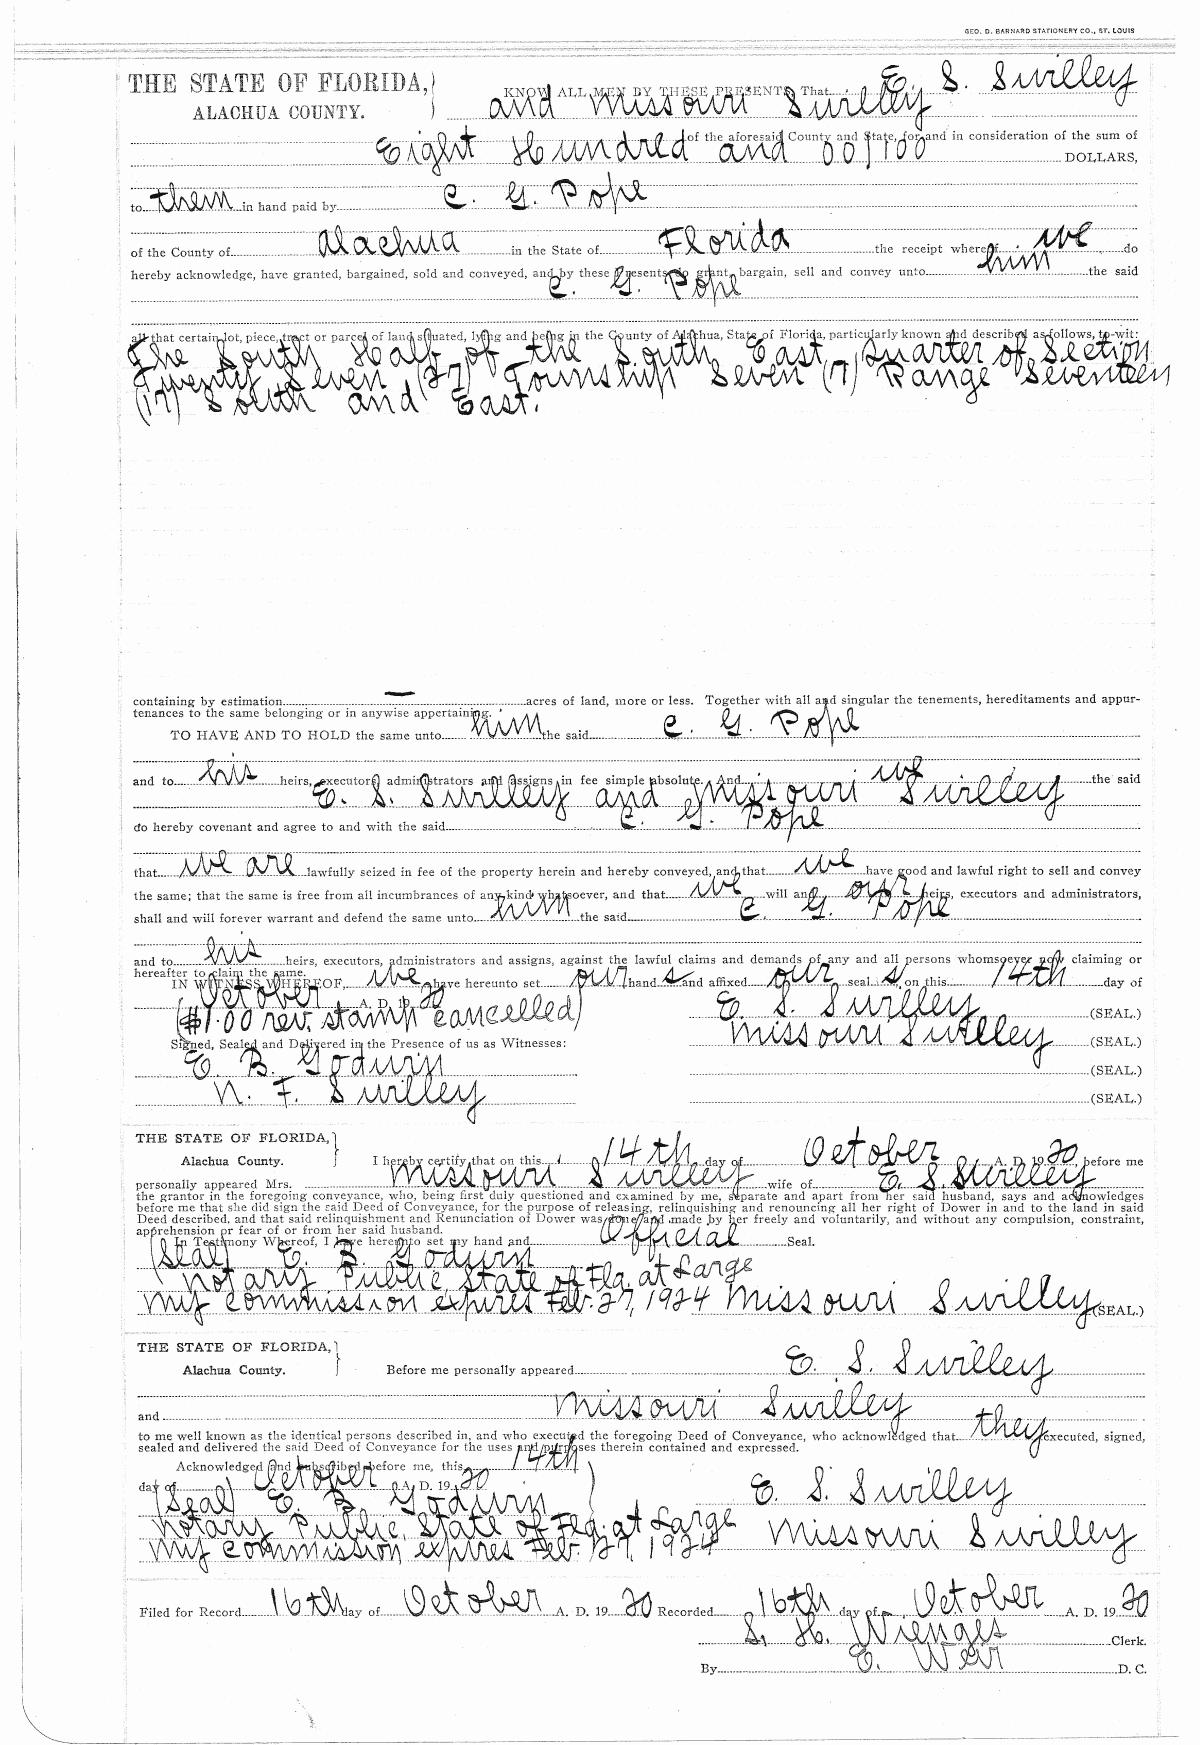 GEO. D. BARNARD STATIONERY CO., ST. LOUIS
THE STATE OF FLORIDA, KNOW ALL MEN BY THESE PRESENTS That E. S. Swilley
ALACHUA COUNTY. and Missouri Swilley
of the aforesaid County and State, for and in consideration of the sum of
Eight Hundred and 00/100 DOLLARS,
to them in hand paid by C. G. Pope
of the County of Alachua in the State of Florida the receipt whereof we do
hereby acknowledge, have granted, bargained, sold and conveyed, and by these Presents do grant, bargain, sell and convey unto him the said
C. G. Pope
all that certain lot, piece, tract or parcel of land situated, lying and being in the County of Alachua, State of Florida, particularly known and described as follows, to-wit:
The South Half of the South East Quarter of Section
Twenty Seven (27) Township Seven (7) Range Seventeen
(17) South and East.
containing by estimation — acres of land, more or less. Together with all and singular the tenements, hereditaments and appur-
tenances to the same belonging or in anywise appertaining.
TO HAVE AND TO HOLD the same unto him the said C. G. Pope
and to his heirs, executors, administrators and assigns in fee simple absolute. And we the said
E. S. Swilley and Missouri Swilley
do hereby covenant and agree to and with the said C. G. Pope
that we are lawfully seized in fee of the property herein and hereby conveyed, and that we have good and lawful right to sell and convey
the same; that the same is free from all incumbrances of any kind whatsoever, and that we will and our heirs, executors and administrators,
shall and will forever warrant and defend the same unto him the said C. G. Pope
and to his heirs, executors, administrators and assigns, against the lawful claims and demands of any and all persons whomsoever now claiming or
hereafter to claim the same.
IN WITNESS WHEREOF, we have hereunto set our hand s and affixed our seal s on this 14th day of
October A. D. 19 20 E. S. Swilley (SEAL.)
($1.00 rev. stamp cancelled)
Signed, Sealed and Delivered in the Presence of us as Witnesses: Missouri Swilley (SEAL.)
E. B. Godwin (SEAL.)
N. F. Swilley (SEAL.)
THE STATE OF FLORIDA,
Alachua County. I hereby certify that on this 14th day of October A. D. 19 20, before me
personally appeared Mrs. Missouri Swilley wife of E. S. Swilley
the grantor in the foregoing conveyance, who, being first duly questioned and examined by me, separate and apart from her said husband, says and acknowledges
before me that she did sign the said Deed of Conveyance, for the purpose of releasing, relinquishing and renouncing all her right of Dower in and to the land in said
Deed described, and that said relinquishment and Renunciation of Dower was done and made by her freely and voluntarily, and without any compulsion, constraint,
apprehension or fear of or from her said husband.
In Testimony Whereof, I have hereunto set my hand and Official Seal.
(Seal) E. B. Godwin
Notary Public State of Fla. at Large
My commission expires Feb. 27, 1924 Missouri Swilley (SEAL.)
THE STATE OF FLORIDA,
Alachua County. Before me personally appeared E. S. Swilley
and Missouri Swilley
to me well known as the identical persons described in, and who executed the foregoing Deed of Conveyance, who acknowledged that they executed, signed,
sealed and delivered the said Deed of Conveyance for the uses and purposes therein contained and expressed.
Acknowledged and subscribed before me, this 14th
day of October A. D. 19 20
(Seal) E. B. Godwin E. S. Swilley
Notary Public, State of Fla. at Large
My commission expires Feb. 27, 1924 Missouri Swilley
Filed for Record 16th day of October A. D. 19 20 Recorded 16th day of October A. D. 19 20
S. H. Wienges Clerk.
By E. Weir D. C.